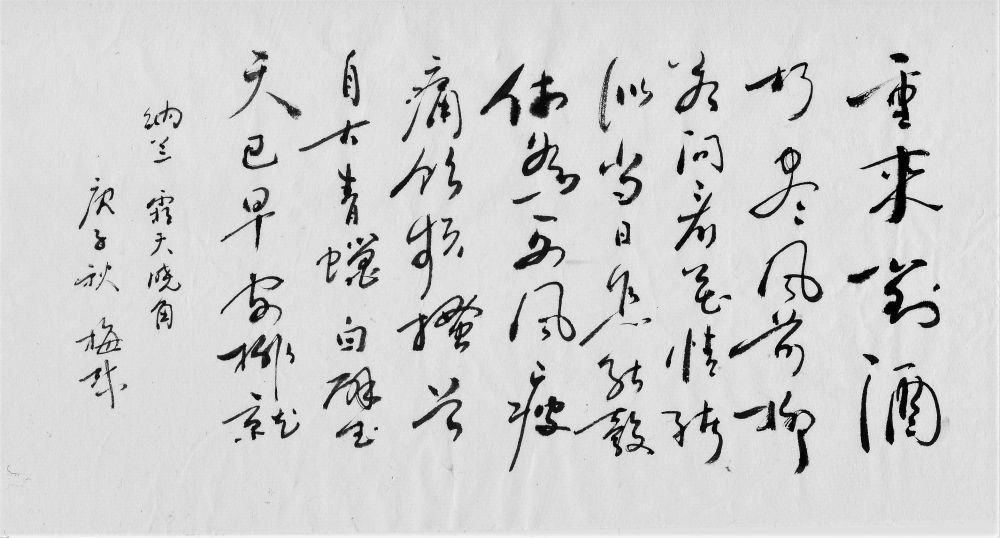 重来對酒
折尽风前柳
若问看花情绪
似当日怎能彀
休为西风瘦
痛饮频搔首
自古青蠅白璧
天已早安排就
纳兰 霜天晓角
庚子秋 梅